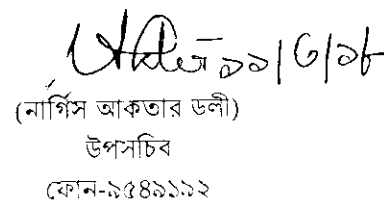 ১১/৬/১৮
(নার্গিস আকতার ডলী)
উপসচিব
ফোন-৯৫৪৯১৯২